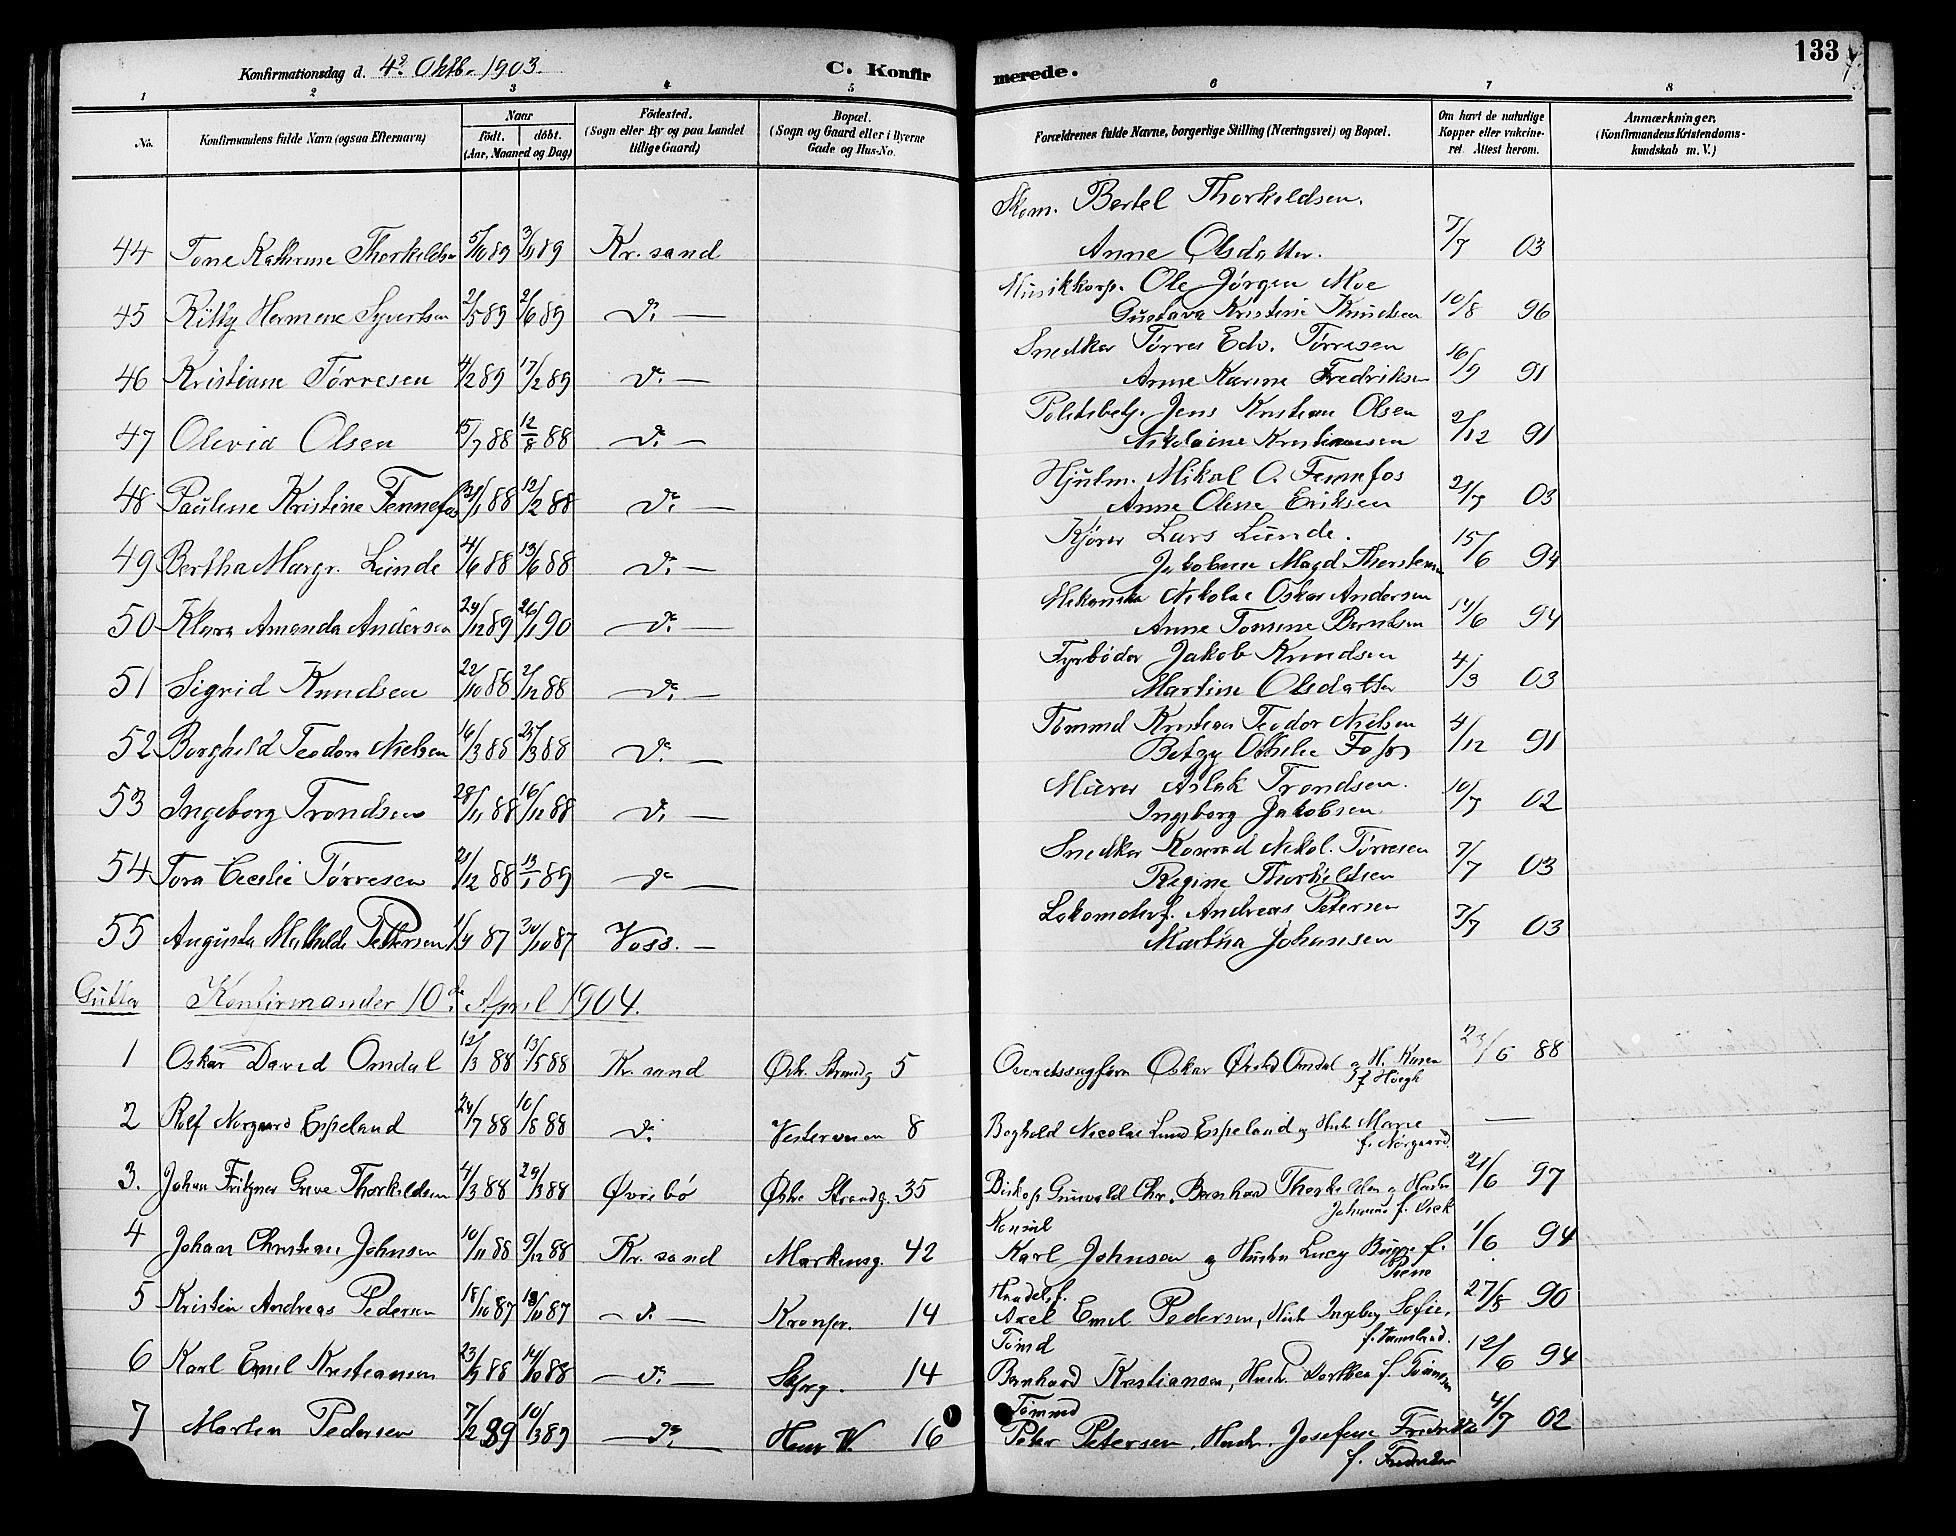 133
Konfirmationsdag d. 4de Oktb. 1903. C. Konfirmerede.
1 2 3 4 5 6 7 8
No. Konfirmandens fulde Navn (ogsaa Efternavn) Naar født. døbt. (Aar, Maaned og Dag) Fødested. (Sogn eller By og paa Landet tillige Gaard) Bopæl. (Sogn og Gaard eller i Byerne Gade og Hus-No. Forældrenes fulde Navne, borgerlige Stilling (Næringsvei) og Bopæl. Om havt de naturlige Kopper eller vakcineret. Attest herom. Anmærkninger. (Konfirmandens Kristendomskundskab m. V.)
Skom. Bertel Thorkeldsen.
44 Tone Kathrine Thorkeldsen 5/10 89 3/11 89 Kr.sand Anne Olsdatter. 7/7 03
Musikkorp. Ole Jörgen Moe
45 Kitty Hermene Syvertsen 2/5 89 2/6 89 Do — Gustava Kristine Knudsen 10/8 96
Snedker Tørres Edv. Tørresen
46 Kristiane Tørresen 4/2 89 17/2 89 Do — Anne Karine Fredriksen 16/9 91
Politibetj. Jens Kristian Olsen
47 Olevia Olsen 15/7 88 12/8 88 Do — Nikolaine Kristiansen 2/12 91
Hjulm. Mikal O. Fennefos
48 Pauline Kristine Fennefos 21/1 88 12/2 88 Do — Anne Olene Eriksen 21/7 03
Kjörer Lars Lunde.
49 Bertha Margr. Lunde 4/6 88 13/6 88 Do — Jakobine Magd Thorstensen 15/6 94
Mekanike Nikolai Oskar Andersen
50 Klara Amanda Andersen 24/12 89 26/1 90 Do — Anne Tomine Berntsen 14/6 94
Fyrböder Jakob Knudsen
51 Sigrid Knudsen 22/10 88 2/12 88 Do — Martine Olsdatter 4/3 03
Tömmd Kristian Teodor Nielsen
52 Borghild Teodora Nielsen 16/3 88 25/3 88 Do — Betzy Othelie 4/12 91
Murer Aslak Trondsen.
53 Ingeborg Trondsen 28/11 88 16/12 88 Do — Ingeborg Jakobsen 10/7 02
Snedker Konrad Nikol. Tørresen
54 Tora Cecelie Tørresen 21/12 88 13/1 89 Do — Regine Thorkeldsen 7/7 03
Lokomotivf. Andreas Petersen
55 Augusta Mathilde Pettersen 1/9 87 30/10 87 Voss. — Martha Johansen 7/7 03
Gutter Konfirmander 10de April 1904.
1 Oskar David Omdal 12/3 88 13/5 88 Kr.sand Östr. Strandg 5 Overretssagförer Oskar Omdal og H. Karen f Höegh 23/6 88
2 Rolf Norgaard Espeland 24/7 88 10/8 88 Do Vesterveien 8 Boghold Nicolai Lund Espeland og Hustr Marie f. Nörgaard —
3. Johan Fritzner Greve Thorkildsen 4/3 88 29/3 88 Øvrebö Østre Strandg. 35 Biskop Gunvald Chr. Bernhard Thorkildsen og Hustru Johanne f. 21/6 97
Konsul
4 Johan Christian Johnsen 10/11 88 9/12 88 Kr.sand Markensg. 42 Karl Johnsen og Hustru Lucy f. 1/6 94
Handelsf.
5 Kristin Andreas Pedersen 18/10 87 18/10 87 — Do — Kronpr. 14 Axel Emil Pedersen, Hustr Ingeborg Sofie, f. 27/8 90
Tömd
6 Karl Emil Kristiansen 23/9 88 14/10 88 — Do — 14 Bernhard Kristiansen, Hustr Dorthea f. Tönnesen 12/6 94
Tömmd
7 Martin Pedersen 7/2 89 10/3 89 — Do — Henr W. 16 Peter Petersen, Hustr. Josefine Fredrikke f. 4/7 02